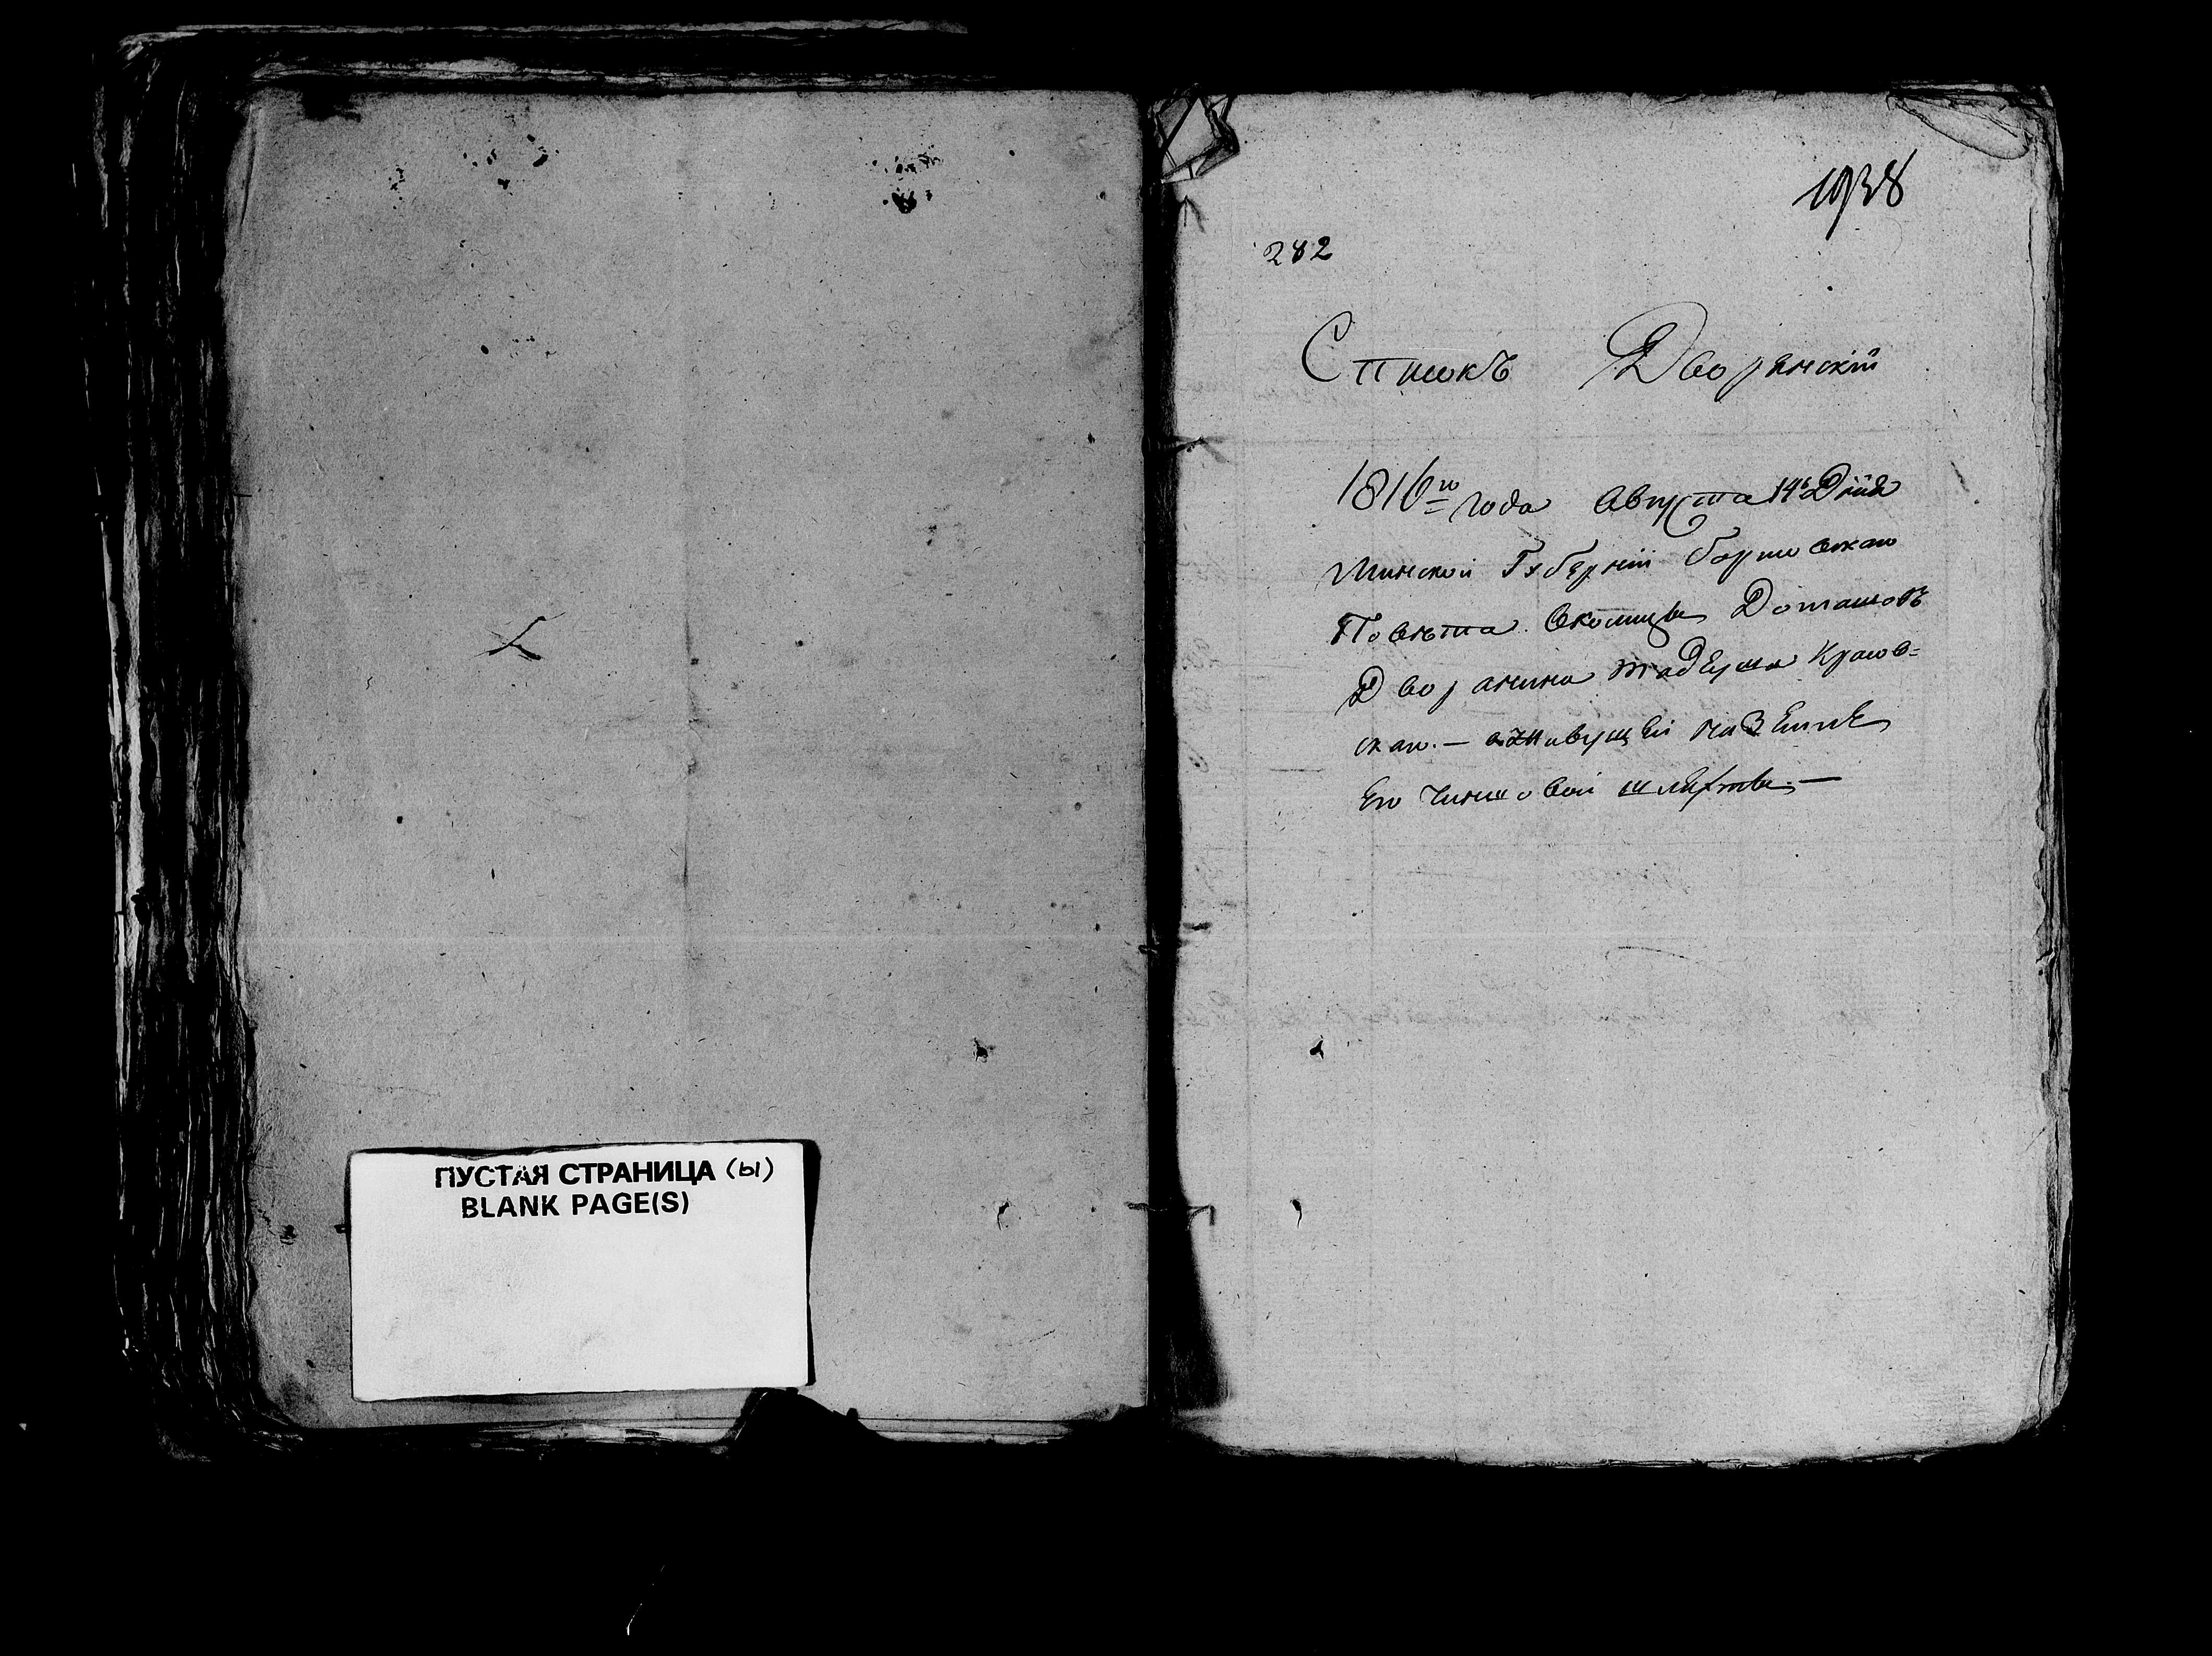 ПУСТАЯ СТРАНИЦА (ы)
BLANK PAGE(S)
1938
282
Списокъ Дворянскій
1816го года Августа 14 Дня
Минской Губерніи Борисовскаго
Повѣта Околицы Доташовъ
Дворянина Тадеуша Красов=
скаго. — живущей на Землѣ
Его Чиншовой шляхты. —